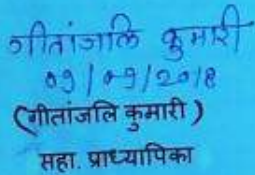 गीतांजलि कुमारी
09/09/2018
(गीतांजलि कुमारी)
सहा. प्राध्यापिका